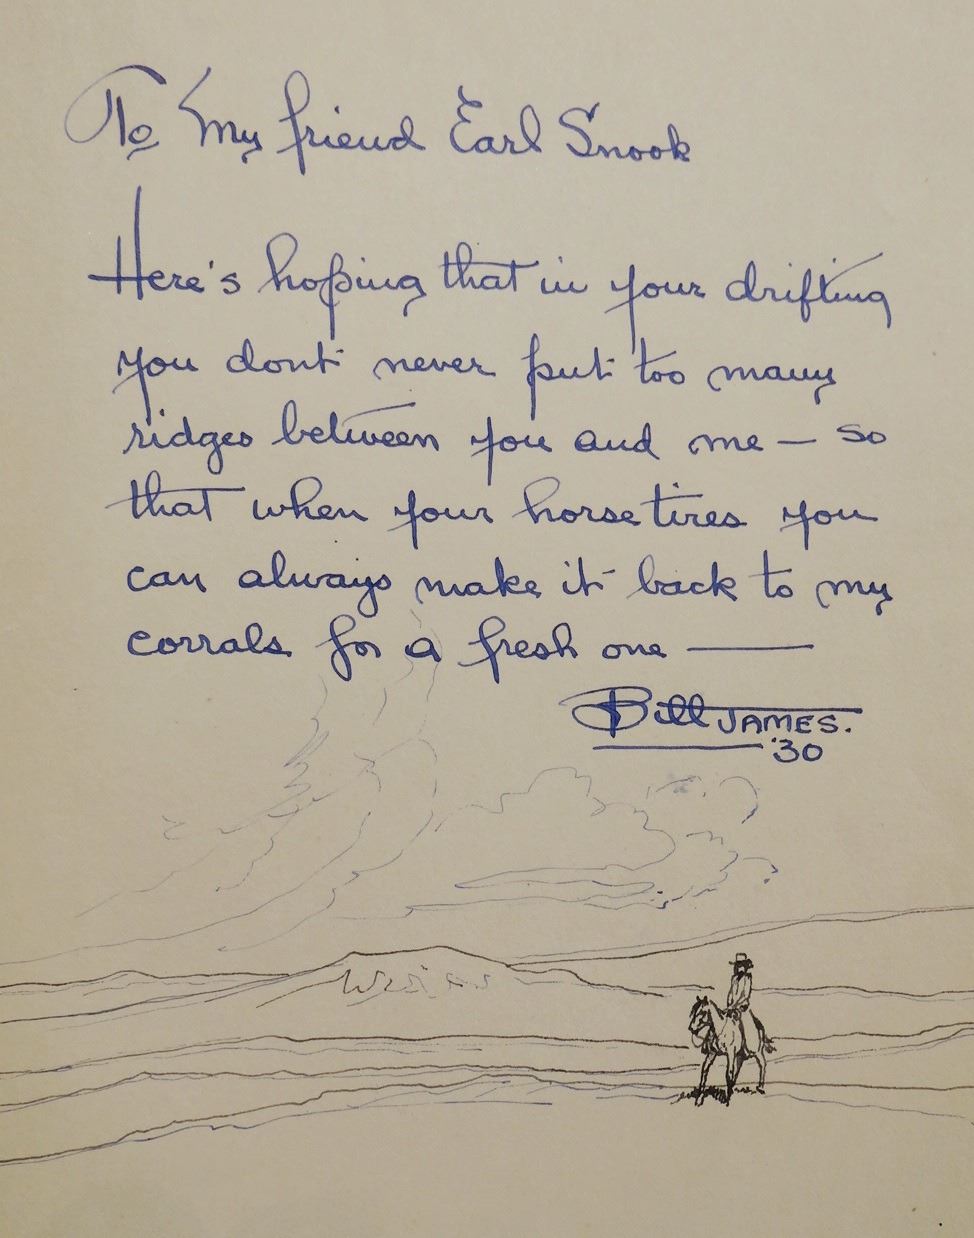 To My friend Earl Snook
Here's hoping that in your drifting
you dont never put too many
ridges between you and me — so
that when your horse tires you
can always make it back to my
corrals for a fresh one ———
Bill JAMES.
'30